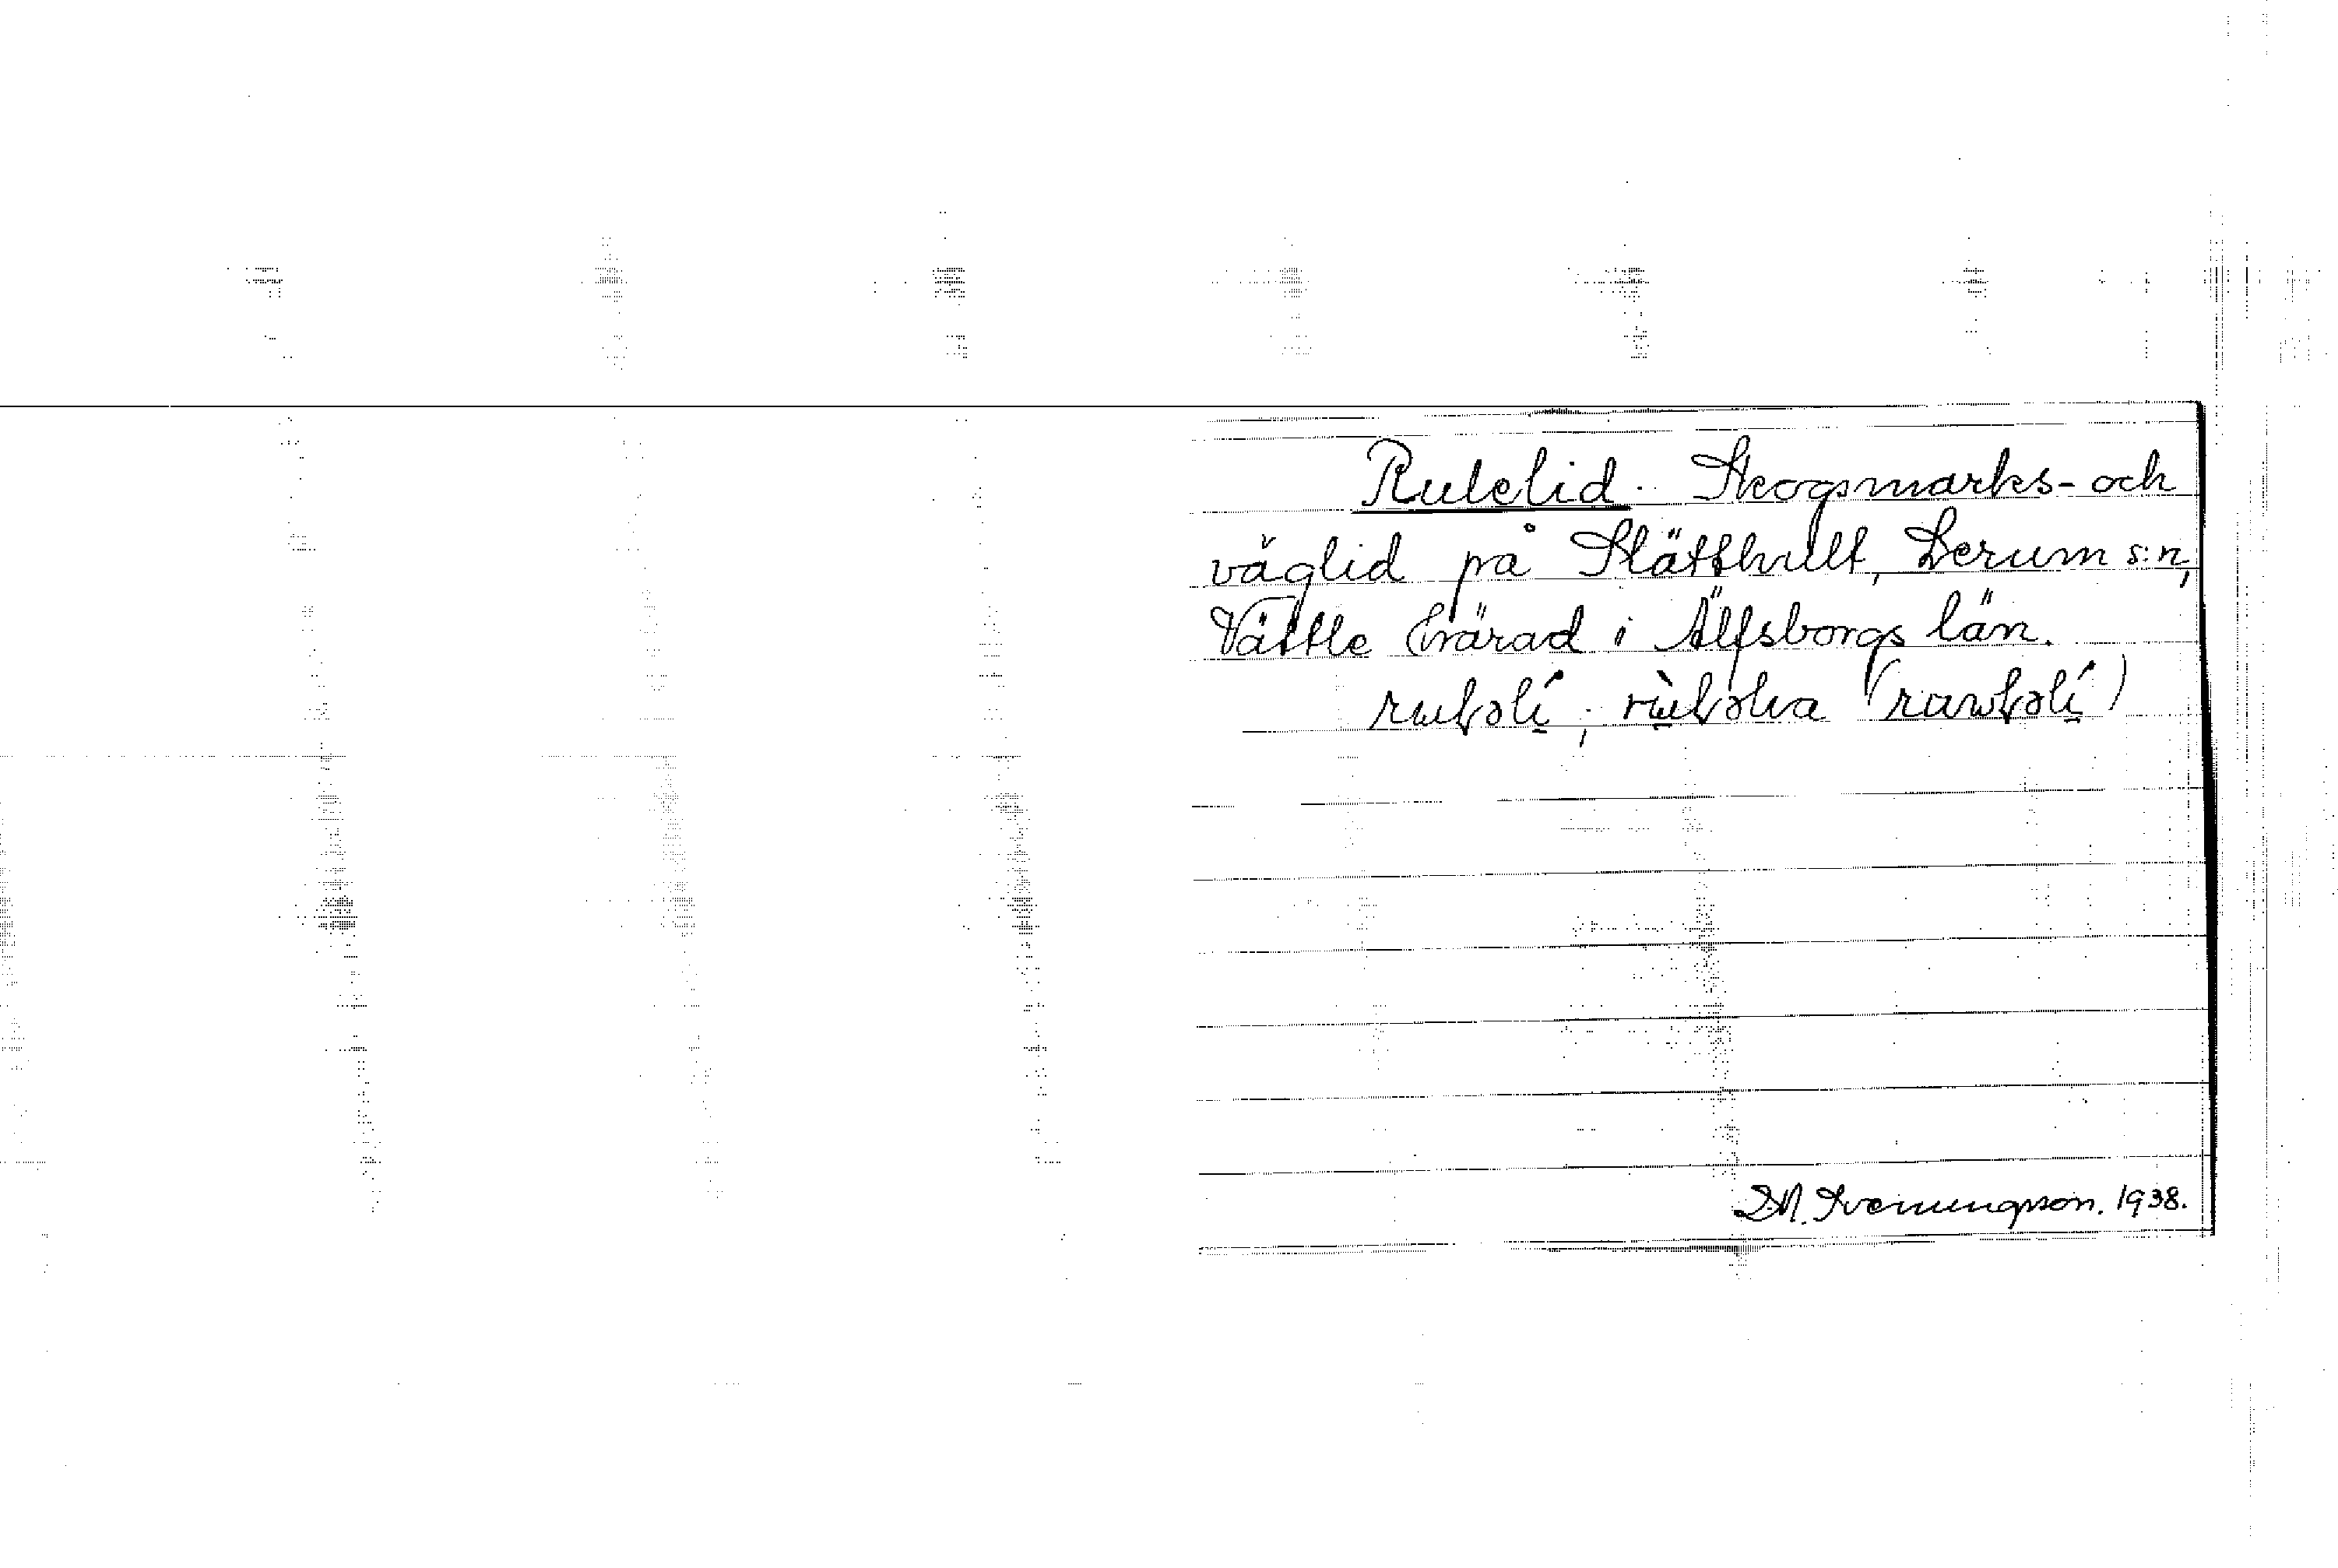 Rulelid. Skogsmarks- och
väglid på Slätthult, Lerum s:n,
Vättle härad i Älfsborgs län.
D.N. Svenungsson. 1938.